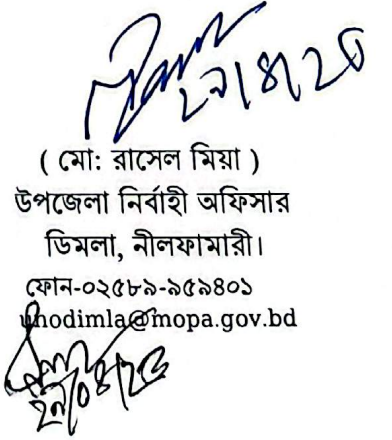 ( মো: রাসেল মিয়া )
উপজেলা নির্বাহী অফিসার
ডিমলা, নীলফামারী।
ফোন-০২৫৮৯-৯৫৯৪০১
unodimla@mopa.gov.bd